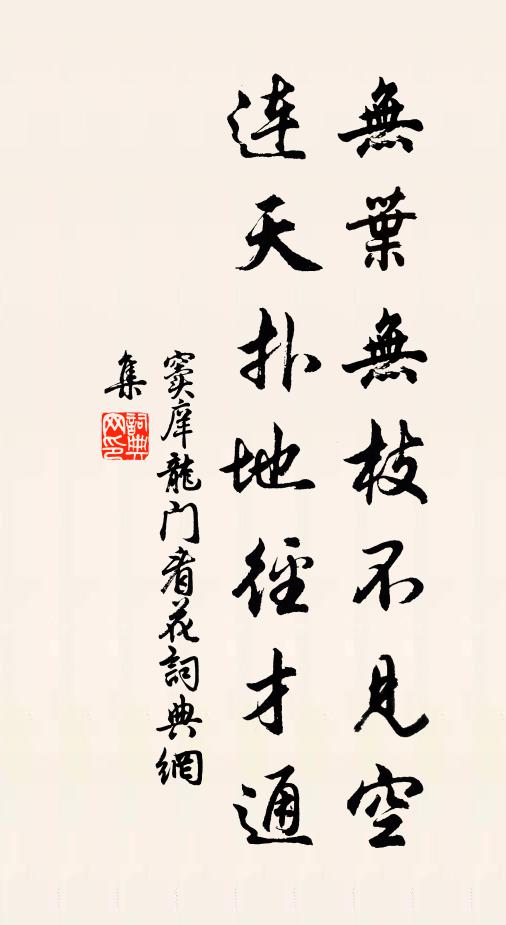 無葉無枝不見空
連天扑地徑才通
竇庠龍門看花詞典網
集
詞典
网印